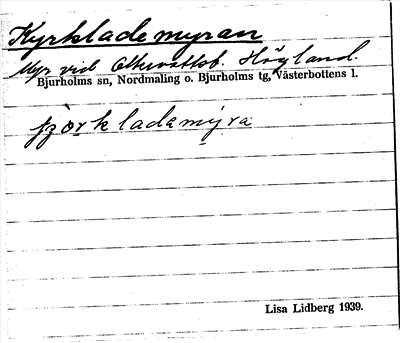 Kyrklademyran
Myr vid Höglund.
Bjurholms sn, Nordmaling o. Bjurholms tg, Västerbottens l.
fʒörklademýra
Lisa Lidberg 1939.